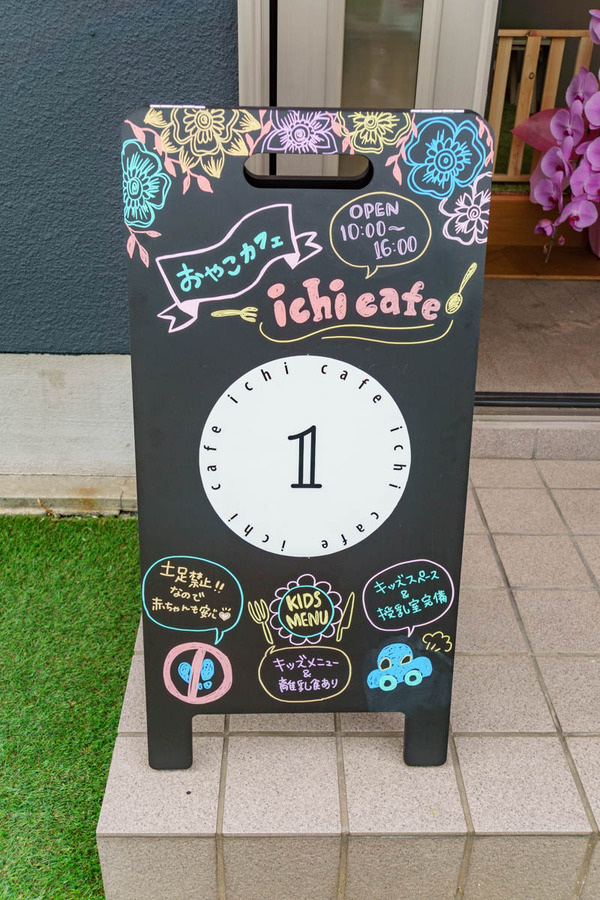 おやこカフェ
OPEN
10:00~
16:00
ichi cafe
ichi cafe ichi cafe ichi cafe ichi cafe
1
土足禁止!!
なので
赤ちゃんも安心
KIDS
MENU
キッズスペース
&
授乳室完備
キッズメニュー
&
離乳食あり